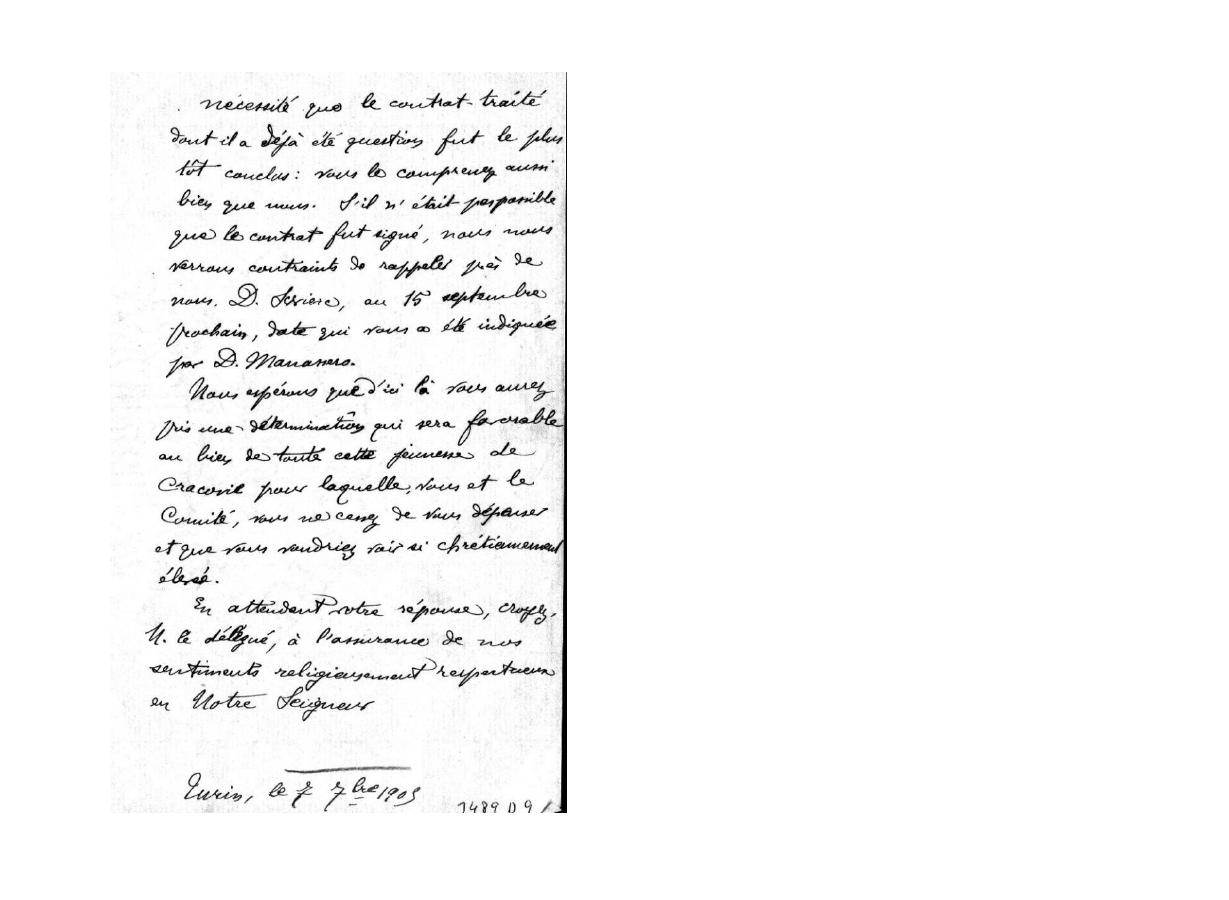 nécessité que le contrat-traité
dont il a déjà été question fut le plus
tôt conclus: vous le comprenez aussi
bien que nous. S'il n'était pas possible
que le contrat fut signé, nous nous
verrons contraints de rappeler près de
nous. D. , au 15 septembre
prochain, date qui vous a été indiquée
par D. Manassero.
Nous espérons que d'ici là vous aurez
pris une détermination qui sera favorable
au bien de toute cette jeunesse de
Cracovie pour laquelle, vous et le
Comité, vous ne cessez de vous dépenser
et que vous voudriez voir si chrétiennement
élevé.
En attendant votre réponse, croyez,
M. le délégué, à l'assurance de nos
sentiments religieusement respectueux
en Notre Seigneur
Turin, le 7 7bre 1909
1489 D 9